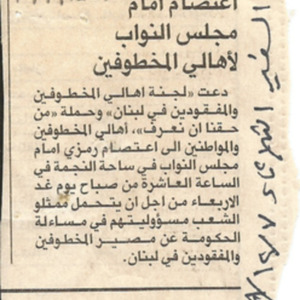 اعتصام امام
مجلس النواب
لأهالي المخطوفين
دعت «لجنة اهالي المخطوفين
والمفقودين في لبنان» وحملة «من
حقنا ان نعرف»، أهالي المخطوفين
والمواطنين الى اعتصام رمزي امام
مجلس النواب في ساحة النجمة في
الساعة العاشرة من صباح يوم غد
الاربعاء من اجل ان يتحمل ممثلو
الشعب مسؤوليتهم في مساءلة
الحكومة عن مصير المخطوفين
والمفقودين في لبنان.
السفير